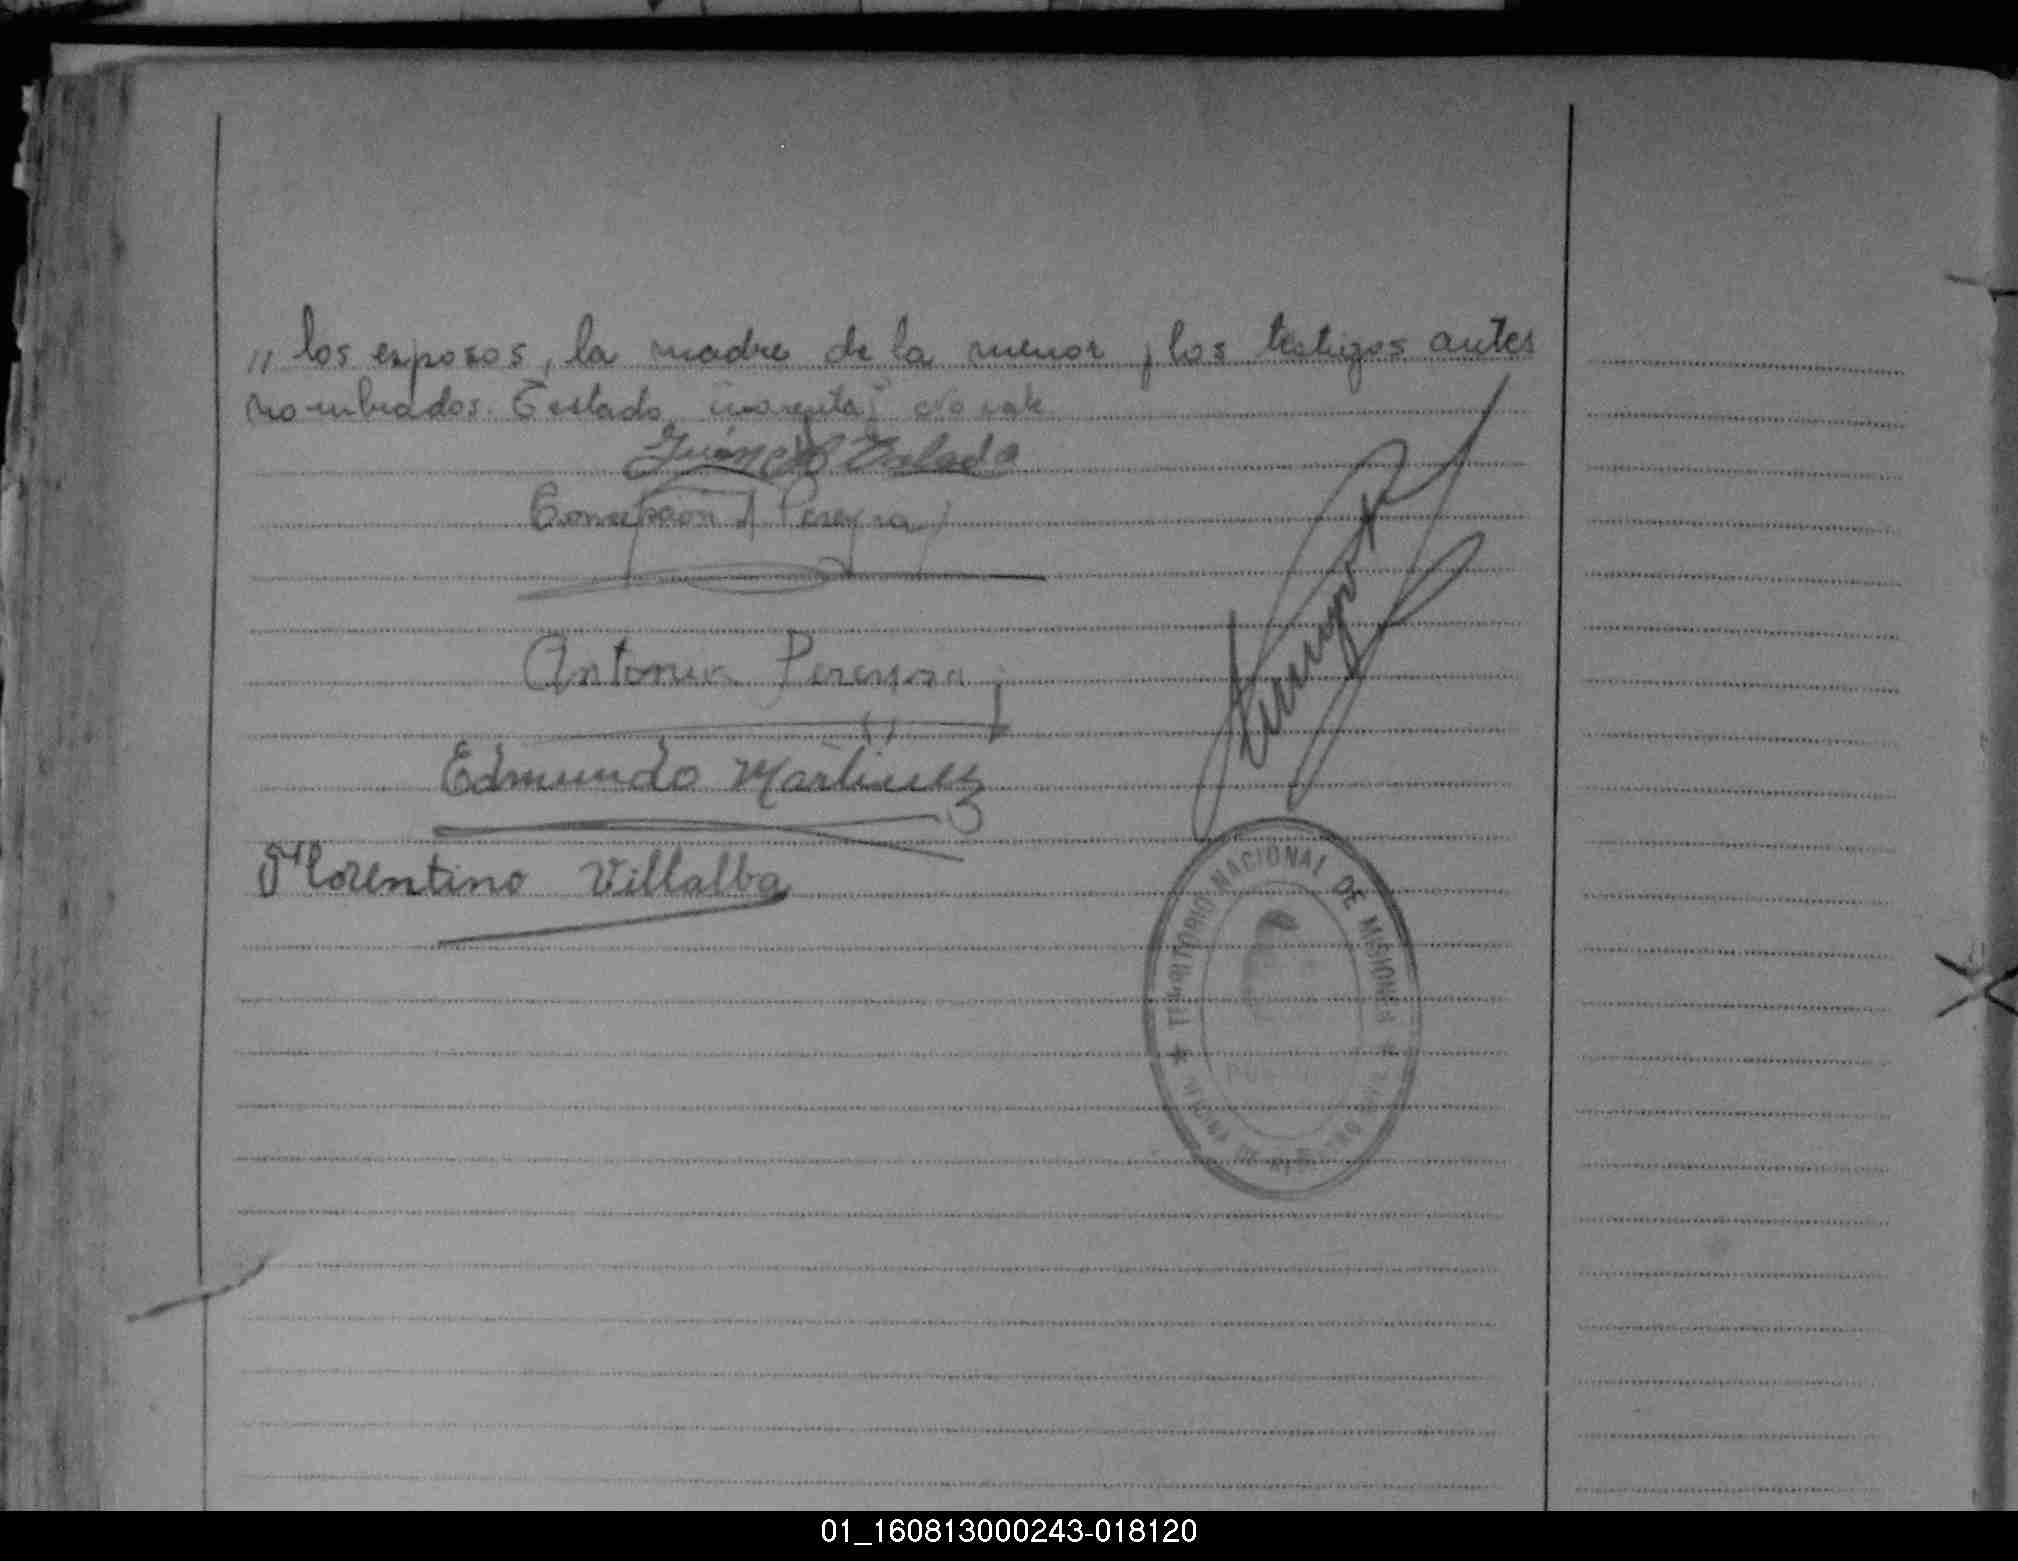 " los esposos, la madre de la menor y los testigos antes
nombrados. Testado No vale
Concepcion A Pereyra
Antonia Pereyra
Edmundo Martinez
Florentino Villalba
TERRITORIO NACIONAL DE MISIONES
01_160813000243-018120